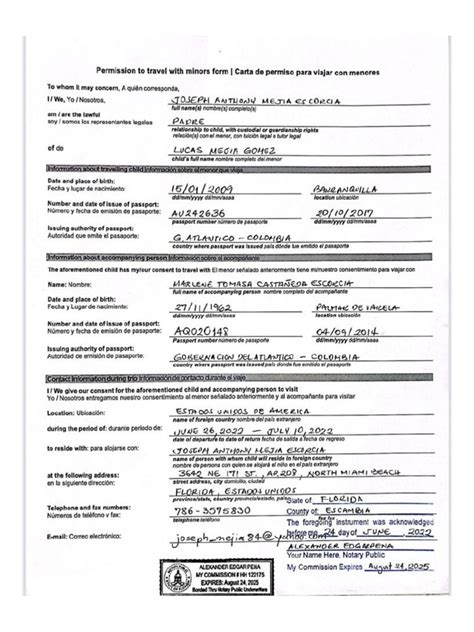 Permission to travel with minors form | Carta de permiso para viajar con menores
To whom it may concern, A quién corresponda,
I / We, Yo / Nosotros, JOSEPH ANTHONY MEJIA ESCORCIA
full name(s) nombre completo
am / are the lawful
soy / somos los representantes legales PADRE
relationship to child, with custodial or guardianship rights
relación con el menor, con tuición legal o tutor legal
of de LUCAS MEJIA GOMEZ
child's full name nombre completo del menor
Information about travelling child Información sobre el menor que viaja
Date and place of birth:
Fecha y lugar de nacimiento: 15/01/2009 BARRANQUILLA
dd/mm/yyyy dd/mm/aaaa location ubicación
Number and date of issue of passport:
Número y fecha de emisión de pasaporte: AU242636 20/10/2017
passport number número de pasaporte dd/mm/yyyy dd/mm/aaaa
Issuing authority of passport:
Autoridad que emite el pasaporte: G. ATLANTICO - COLOMBIA
country where passport was issued país dónde fue emitido el pasaporte
Information about accompanying person Información sobre el acompañante
The aforementioned child has my/our consent to travel with El menor señalado anteriormente tiene mi/nuestro consentimiento para viajar con
Name: Nombre: MARLENE TOMASA CASTAÑEDA ESCORCIA
full name of accompanying person nombre completo del acompañante
Date and place of birth:
Fecha y Lugar de nacimiento: 27/11/1962 PALMAR DE VARELA
dd/mm/yyyy dd/mm/aaaa location ubicación
Number and date of issue of passport:
Número y fecha de emisión de pasaporte: AQ020148 04/09/2014
passport number número de pasaporte dd/mm/yyyy dd/mm/aaaa
Issuing authority of passport:
Autoridad de emisión de pasaporte: GOBERNACION DEL ATLANTICO - COLOMBIA
country where passport was issued país donde fue emitido el pasaporte
Contact information during trip Información de contacto durante el viaje
I / We give our consent for the aforementioned child and accompanying person to visit
Yo / Nosotros entregamos nuestro consentimiento al menor señalado anteriormente y al acompañante para visitar
Location: Ubicación: ESTADOS UNIDOS DE AMERICA
name of foreign country nombre del país extranjero
during the period of: durante periodo de: JUNE 26, 2022 - JULY 10, 2022
date of departure to date of return fecha de salida a fecha de regreso
to reside with: para alojarse con: JOSEPH ANTHONY MEJIA ESCORCIA
name of person with whom child will reside in foreign country
nombre de persona con quien se alojará el niño en el país extranjero
at the following address: 3642 NE 171 ST, AP,208, NORTH MIAMI BEACH
en la siguiente dirección: street address, city dirección, ciudad
FLORIDA, ESTADOS UNIDOS
province/state, country provincia/estado, país
State of: FLORIDA
Telephone and fax numbers:
Números de teléfono y fax: 786-3575830
telephone teléfono
County of: ESCAMBIA
The foregoing instrument was acknowledged
before me 24 day of JUNE, 2022
E-mail: Correo electrónico: joseph_mejia84@yahoo.com
ALEXANDER EDGAR PENA
Your Name Here, Notary Public
My Commission Expires August 24, 2025
ALEXANDER EDGAR PENA
MY COMMISSION # HH 122175
EXPIRES: August 24, 2025
Bonded Thru Notary Public Underwriters